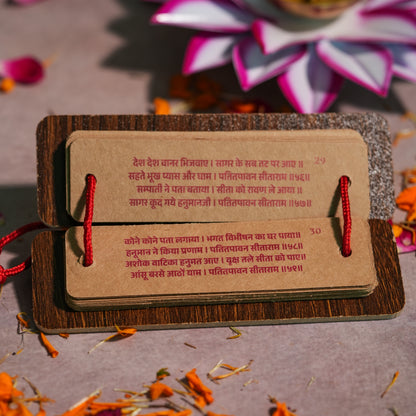 देश देश वानर भिजवाए । सागर के सब तट पर आए ॥
29
सहते भूख प्यास और घाम । पतितपावन सीताराम ॥५६॥
सम्पाती ने पता बताया । सीता को रावण ले आया ॥
सागर कूद गये हनुमानजी । पतितपावन सीताराम ॥५७॥
कोने कोने पता लगाया । भगत विभीषन का घर पाया ॥
30
हनुमान ने किया प्रणाम । पतितपावन सीताराम ॥५८॥
अशोक वाटिका हनुमत आए । वृक्ष तले सीता को पाए ॥
आंसू बरसे आठों याम । पतितपावन सीताराम ॥५९॥